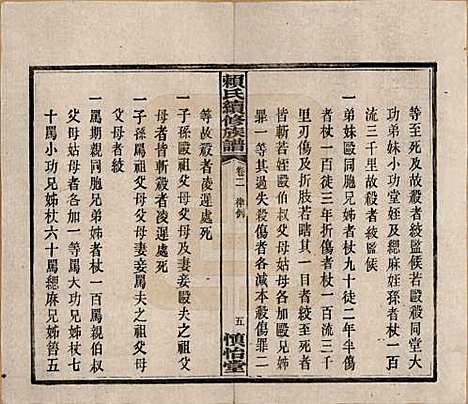 等至死及故殺者絞監候若毆殺同堂大
功弟妹小功堂姪及緦麻姪孫者杖一百
流三千里故殺者絞監候
一弟妹毆同胞兄姊者杖九十徒二年半傷
者杖一百徒三年折傷者杖一百流三千
里刃傷及折肢若瞎其一目者絞死者
皆斬若姪毆伯叔父母姑母各加毆兄姊
罪一等其過失殺傷者各減本殺傷罪二
賴氏續修族譜
卷二
律例
五
慎怡堂
等故殺者凌遲處死
一子孫毆祖父母父母及妻妾毆夫之祖父
母父母者皆斬殺者凌遲處死
一子孫罵祖父母父母妻妾罵夫之祖父母
父母者絞
一罵期親同胞兄弟姊者杖一百罵親伯叔
父母姑母各加一等罵大功兄姊杖七
十罵小功兄姊杖六十罵緦麻兄姊笞五